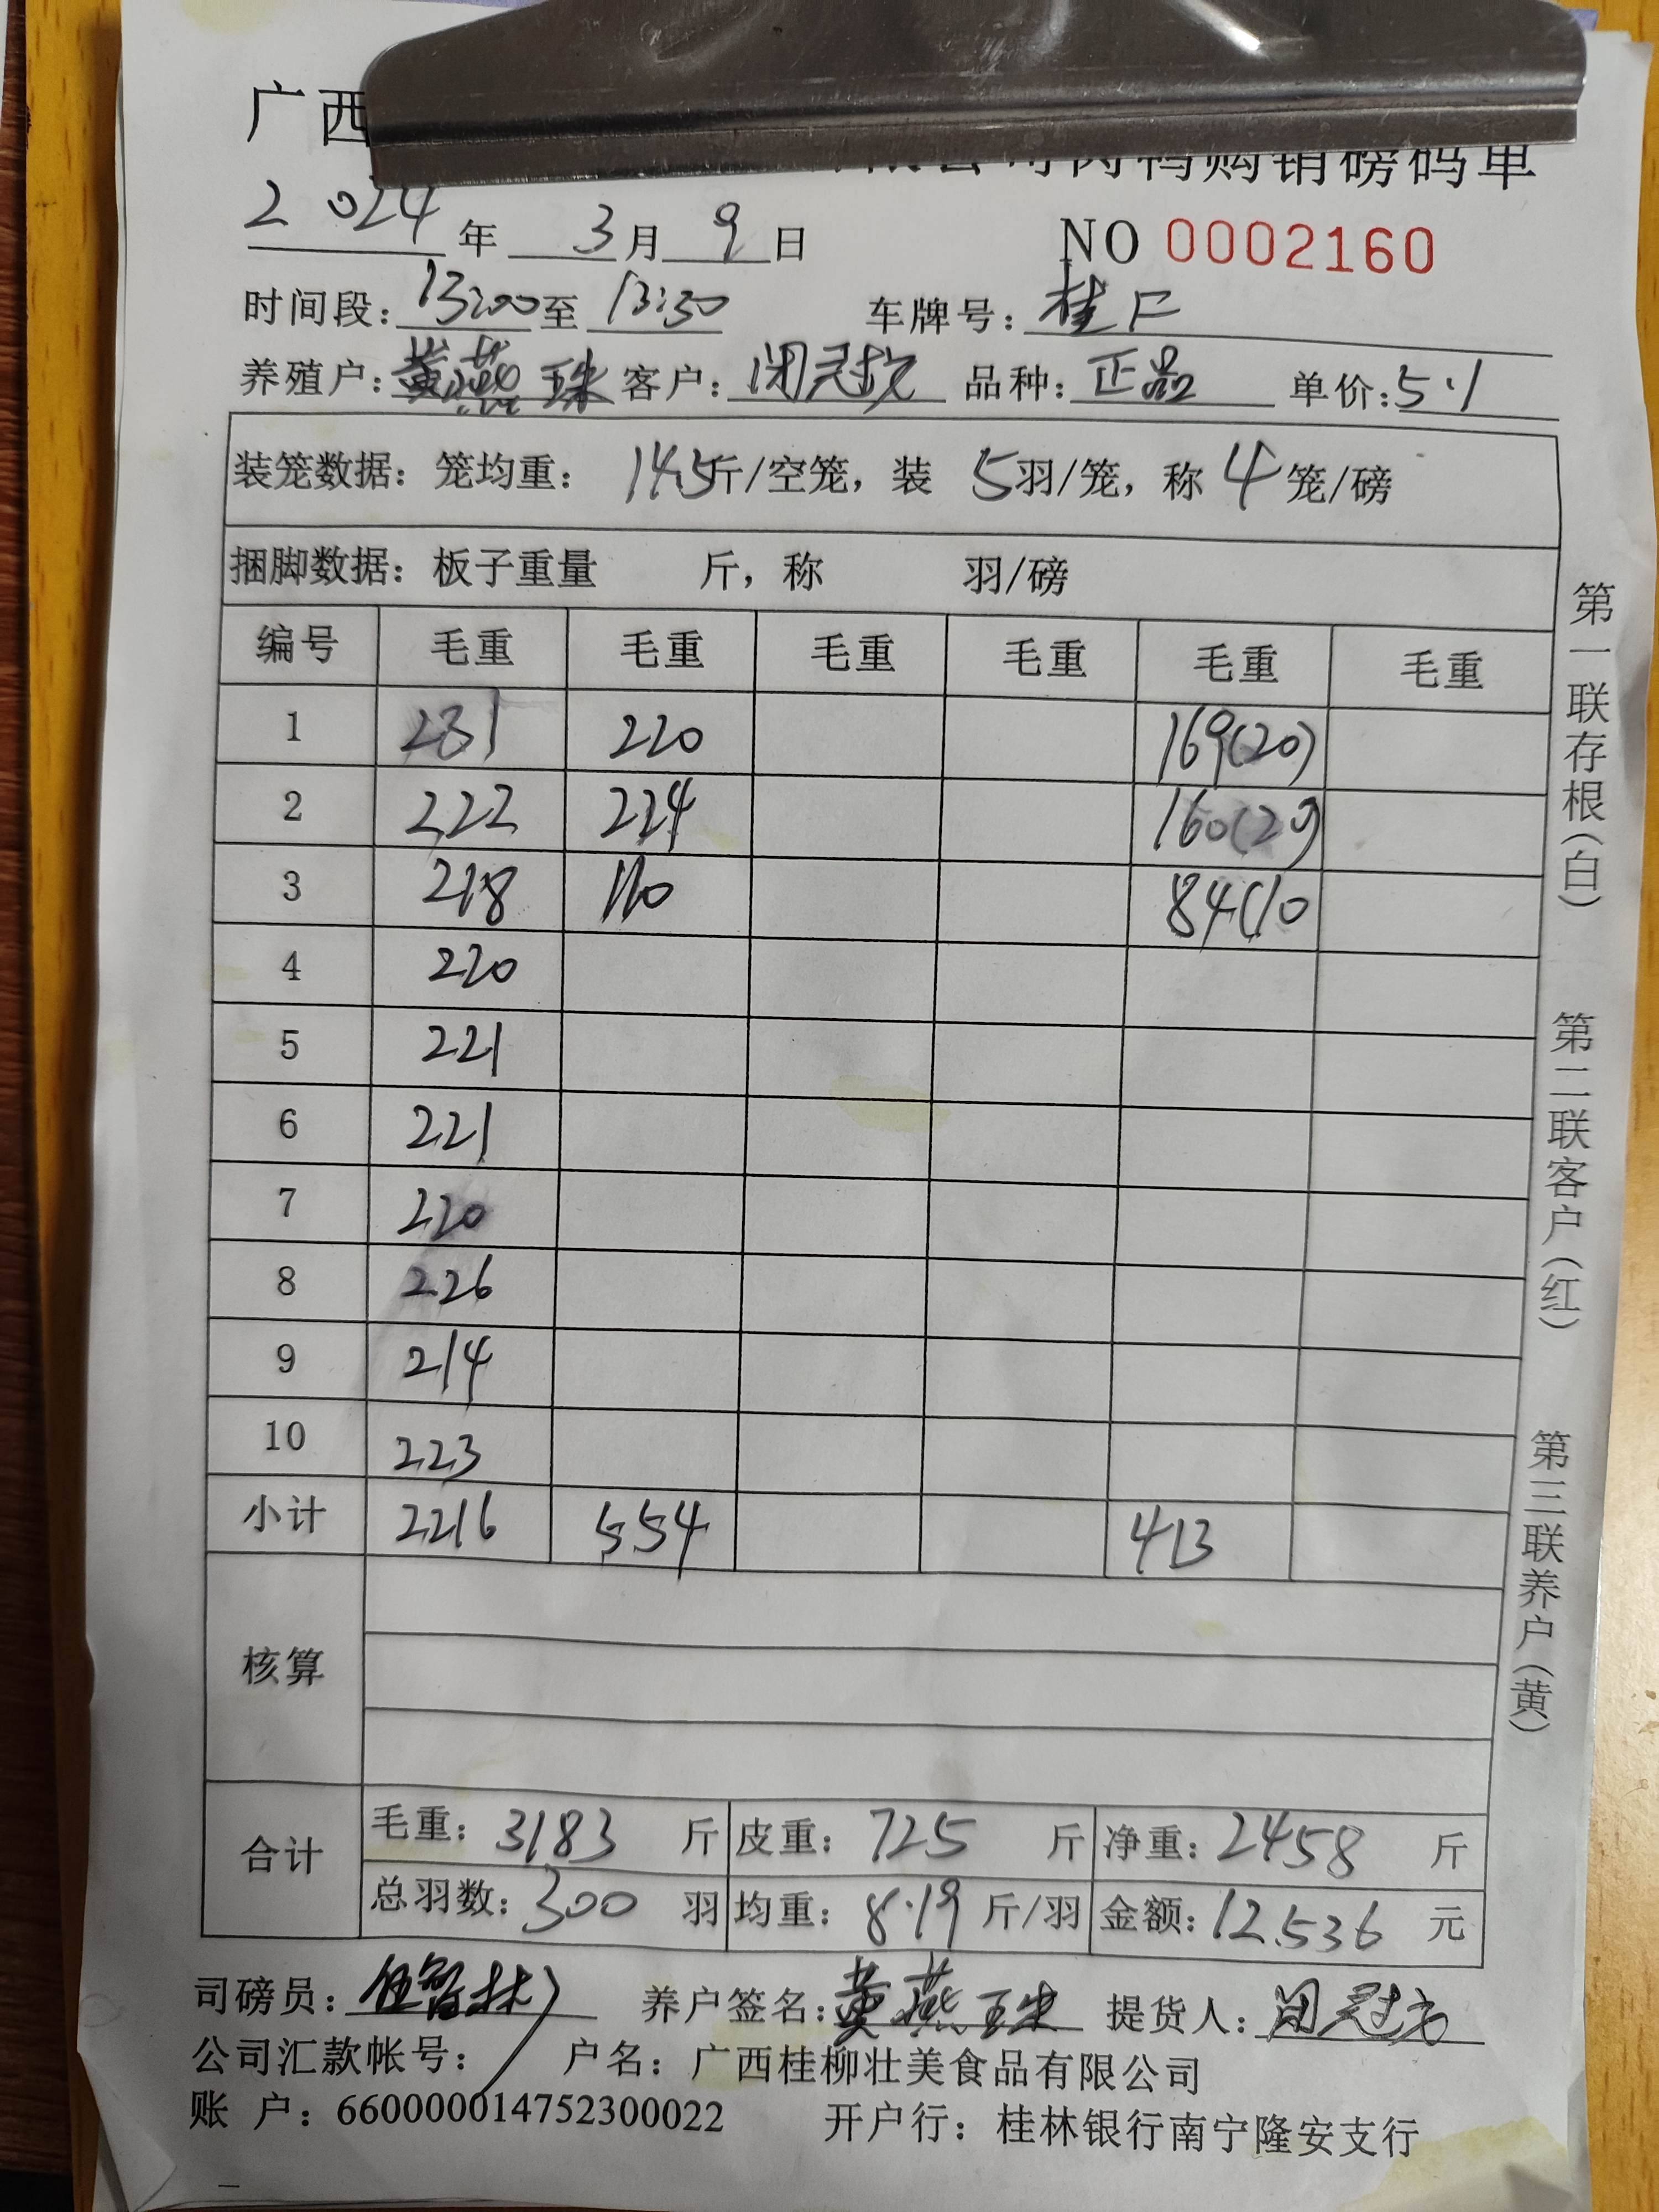 广西 公司肉鸭购销磅码单
2024 年 3 月 9 日 NO 0002160
时间段: 13:00 至 13:50 车牌号: 桂F
养殖户: 黄燕珠 客户: 闭冠 品种: 正品 单价: 5.1
装笼数据: 笼均重: 14.5斤/空笼, 装 5羽/笼, 称 4 笼/磅
捆脚数据: 板子重量 斤, 称 羽/磅
编号 毛重 毛重 毛重 毛重 毛重 毛重
1 231 220 169(20)
2 222 224 160(20)
3 218 110 84(10
4 220
5 221
6 221
7 220
8 226
9 214
10 223
小计 2216 554 413
核算
合计 毛重: 3183 斤 皮重: 725 斤 净重: 2458 斤
总羽数: 300 羽 均重: 8.19 斤/羽 金额: 12536 元
司磅员: 养户签名: 黄燕珠 提货人: 闭冠
公司汇款帐号: 户名: 广西桂柳壮美食品有限公司
账 户: 660000014752300022 开户行: 桂林银行南宁隆安支行
第一联存根(白) 第二联客户(红) 第三联养户(黄)